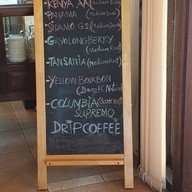 -KENYA AA (Medium Dark)
PANAMA (Medium Dark)
SIDAMO G2 (Medium Dark)
-GAYOLONGBERRY
(Medium Roast)
-TANSANIA (Medium Roast)
-YELLOW BOURBON
(Brazil Natural)
-COLUMBIA (Dark Roast)
SUPREMO
DRIPCOFFEE